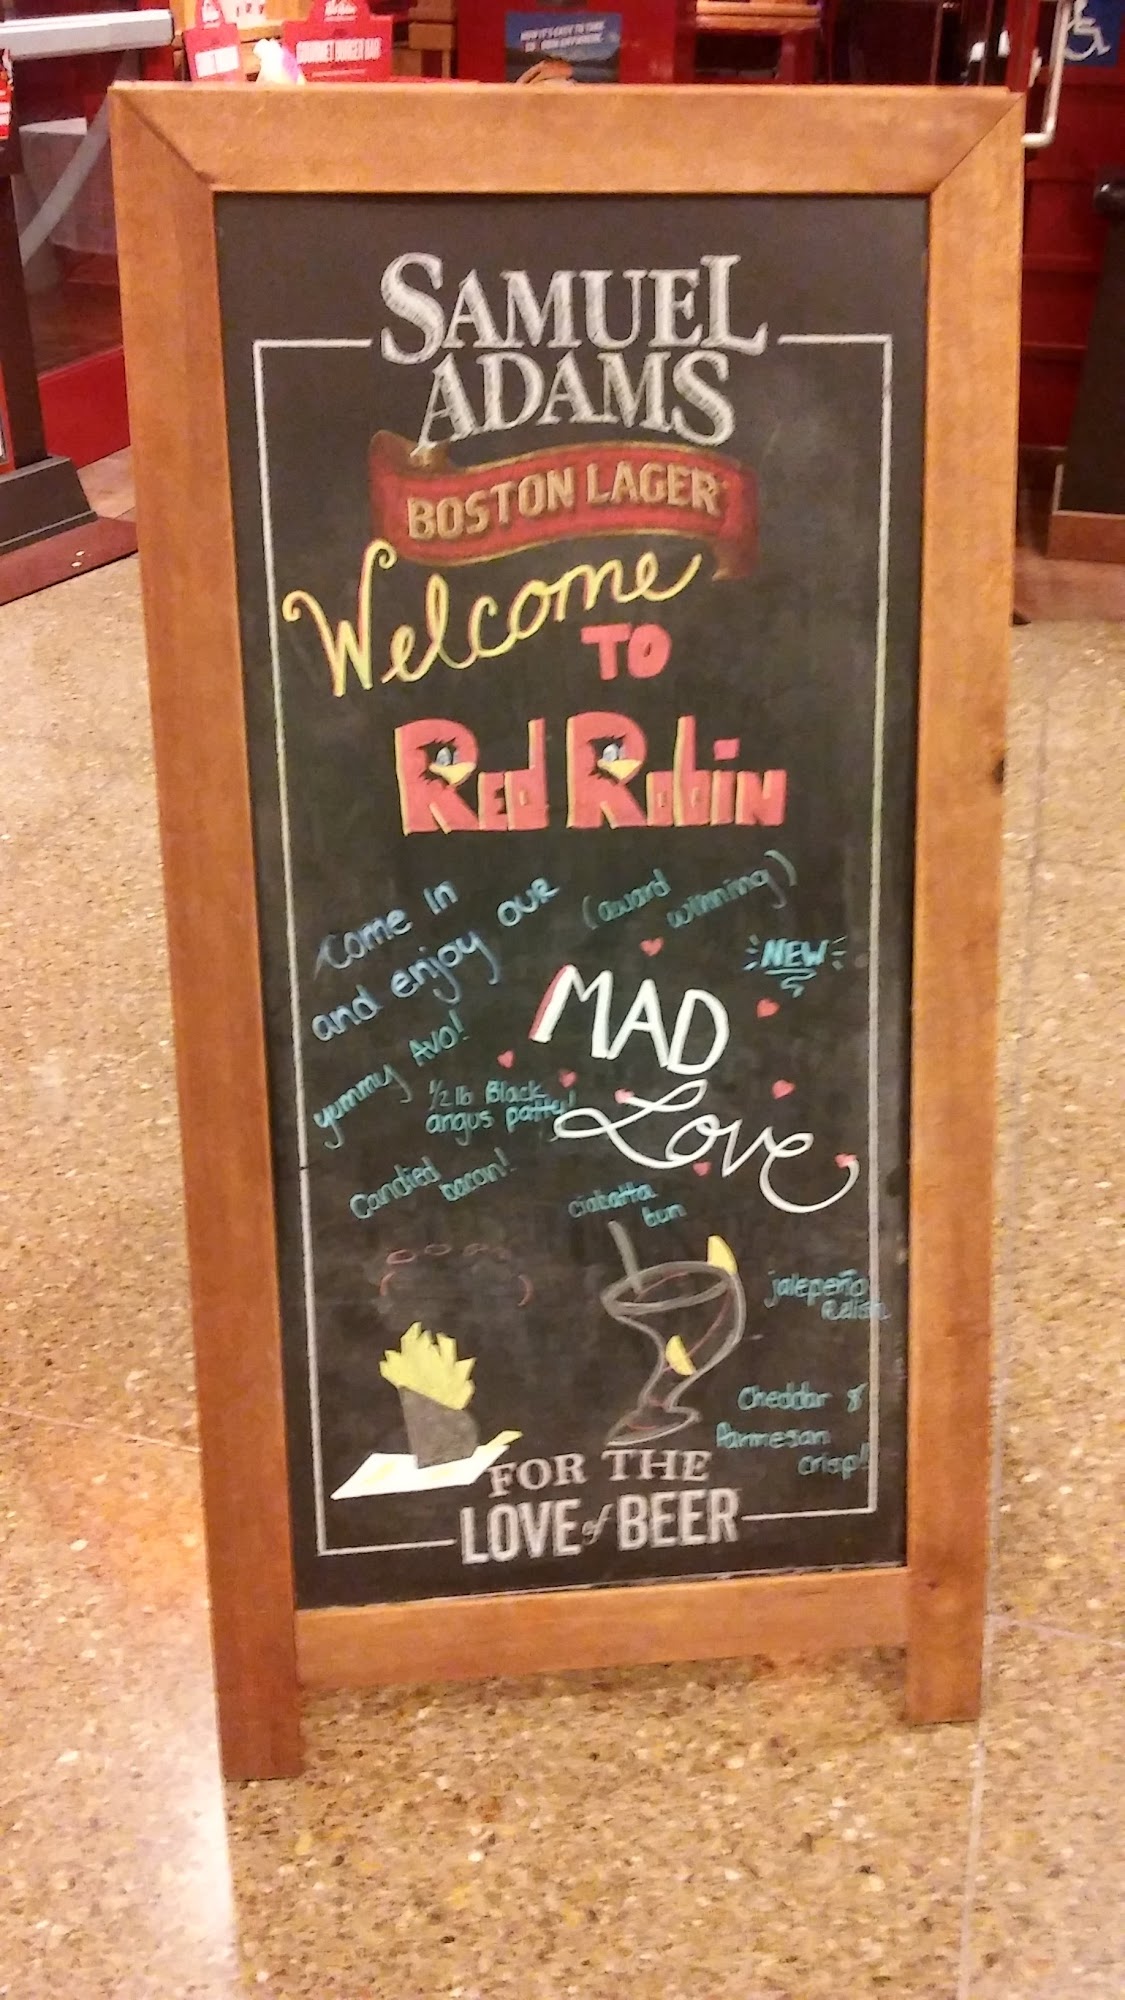 SAMUEL
ADAMS
BOSTON LAGER
Welcome
TO
Red Robin
Come in
and enjoy our
(award
winning)
NEW
MAD
Love
yummy Avo!
1/2 lb Black
angus patty!
Candied
bacon!
ciabatta
bun
jalepeño
Relish
Cheddar &
Parmesan
crisp!!
FOR THE
LOVE of BEER